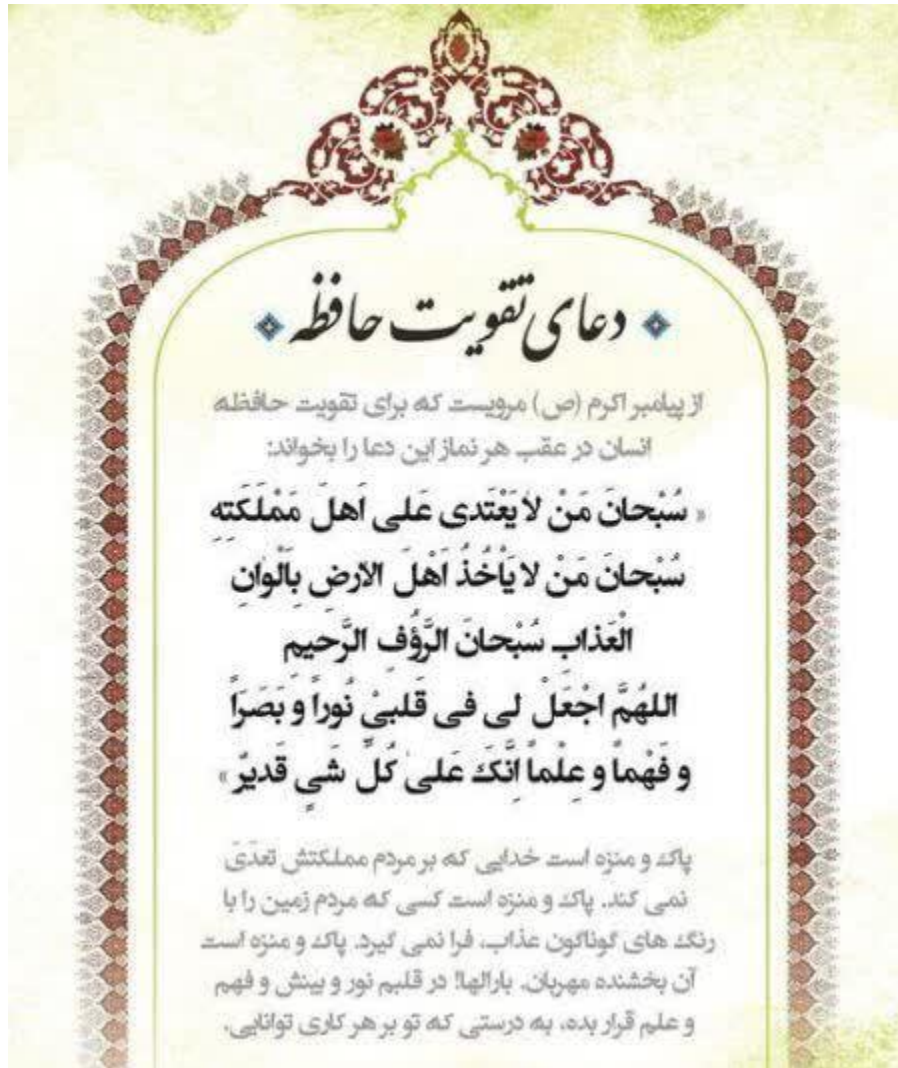 دعای تقویت حافظه
از پیامبر اکرم (ص) مرویست که برای تقویت حافظه
انسان در عقب هر نماز این دعا را بخواند:
« سُبْحانَ مَنْ لا یَعْتَدی عَلی اَهلَ مَمْلَکَتِهِ
سُبْحانَ مَنْ لا یَاْخُذُ اَهْلَ الارضِ بِاَلْوانِ
الْعَذابِ سُبْحانَ الرَّؤُفِ الرَّحیمِ
اللهُمَّ اجْعَلْ لی فی قَلبیْ نُوراً و بَصَرَاً
و فَهْماً و عِلْماً اِنَّکَ عَلیٰ کُلِّ شَیٍ قَدیرٌ »
پاک و منزه است خدایی که بر مردم مملکتش تعدّی
نمی کند. پاک و منزه است کسی که مردم زمین را با
رنگ های گوناگون عذاب، فرا نمی گیرد. پاک و منزه است
آن بخشنده مهربان. بارالها! در قلبم نور و بینش و فهم
و علم قرار بده، به درستی که تو بر هر کاری توانایی.